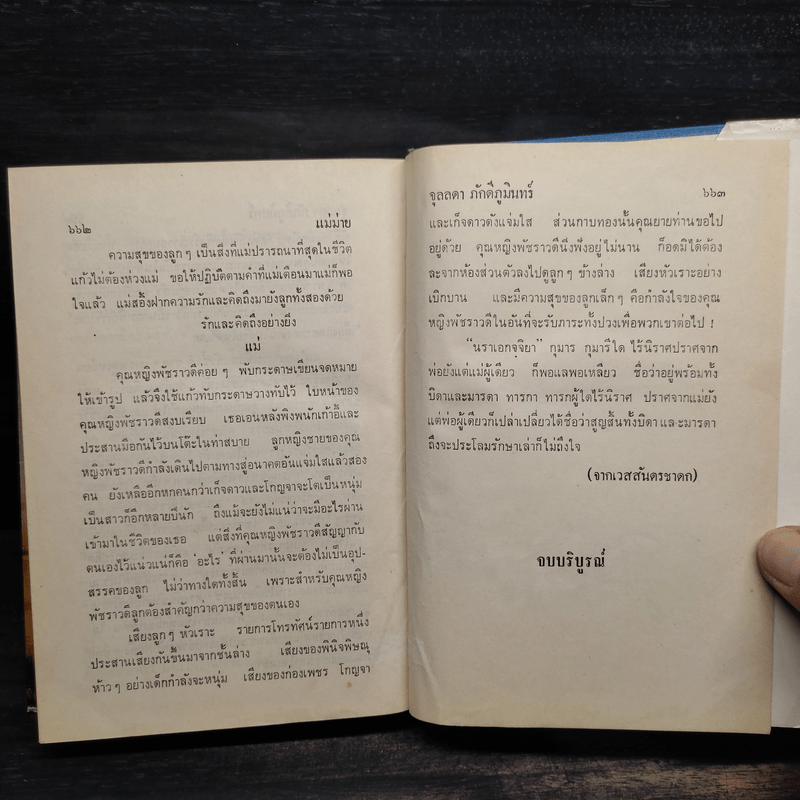 ๖๖๒ แม่ม่าย
ความสุขของลูกๆ เป็นสิ่งที่แม่ปรารถนาที่สุดในชีวิต
แก้วไม่ต้องห่วงแม่ ขอให้ปฏิบัติตามคำที่แม่เตือนมาแม่ก็พอ
ใจแล้ว แม่สอึงฝากความรักและคิดถึงมายังลูกทั้งสองด้วย
รักและคิดถึงอย่างยิ่ง
แม่
คุณหญิงพัชราวดีค่อยๆ พับกระดาษเขียนจดหมาย
ให้เข้ารูป แล้วจึงใช้แก้วทับกระดาษวางทับไว้ ใบหน้าของ
คุณหญิงพัชราวดีสงบเรียบ เธอเอนหลังพิงพนักเก้าอี้และ
ประสานมือกันไว้บนโต๊ะในท่าสบาย ลูกหญิงชายของคุณ
หญิงพัชราวดีกำลังเดินไปตามทางสู่อนาคตอันแจ่มใสแล้วสอง
คน ยังเหลืออีกหกคนกว่าเก็จดาวและโกญจาจะโตเป็นหนุ่ม
เป็นสาวก็อีกหลายปีนัก ถึงแม้จะยังไม่แน่ว่าจะมีอะไรผ่าน
เข้ามาในชีวิตของเธอ แต่สิ่งที่คุณหญิงพัชราวดีสัญญากับ
ตนเองไว้แน่วแน่ก็คือ ‘อะไร’ ที่ผ่านมานั้นจะต้องไม่เป็นอุป-
สรรคของลูก ไม่ว่าทางใดทั้งสิ้น เพราะสำหรับคุณหญิง
พัชราวดีลูกต้องสำคัญกว่าความสุขของตนเอง
เสียงลูกๆ หัวเราะ รายการโทรทัศน์รายการหนึ่ง
ประสานเสียงกันขึ้นมาจากชั้นล่าง เสียงของพินิจพิษณุ
ห้าวๆ อย่างเด็กกำลังจะหนุ่ม เสียงของก่องเพชร โกญจา
จุลลดา ภักดีภูมินทร์ ๖๖๓
และเก็จดาวดังแจ่มใส ส่วนกาบทองนั้นคุณยายท่านขอไป
อยู่ด้วย คุณหญิงพัชราวดีนิ่งฟังอยู่ไม่นาน ก็อดมิได้ต้อง
ละจากห้องส่วนตัวลงไปดูลูกๆ ข้างล่าง เสียงหัวเราะอย่าง
เบิกบาน และมีความสุขของลูกเล็กๆ คือกำลังใจของคุณ
หญิงพัชราวดีในอันที่จะรับภาระทั้งปวงเพื่อพวกเขาต่อไป !
“นราเอกจฺจิยา” กุมาร กุมารีใด ไร้นิราศปราศจาก
พ่อยังแต่แม่ผู้เดียว ก็พอแลพอเหลียว ชื่อว่าอยู่พร้อมทั้ง
บิดาและมารดา ทารกา ทารกผู้ใดไร้นิราศ ปราศจากแม่ยัง
แต่พ่อผู้เดียวก็เปล่าเปลี่ยวได้ชื่อว่าสูญสิ้นทั้งบิดาและมารดา
ถึงจะประโลมรักษาเล่าก็ไม่ถึงใจ
(จากเวสสันดรชาดก)
จบบริบูรณ์